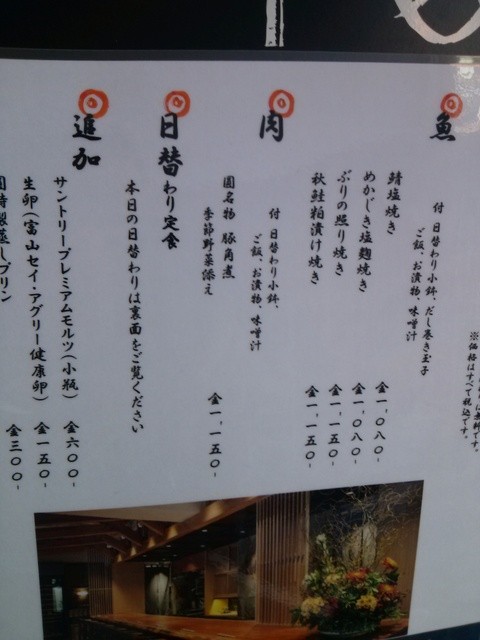 ※価格はすべて税込です。
魚
付 日替わり小鉢、だし巻き玉子
ご飯、お漬物、味噌汁
鯖塩焼き 金一、〇八〇-
めかじき塩麹焼き 金一、〇八〇-
ぶりの照り焼き 金一、一五〇-
秋鮭粕漬け焼き 金一、一五〇-
肉
付 日替わり小鉢、
ご飯、お漬物、味噌汁
圓名物 豚角煮
季節野菜添え 金一、一五〇-
日替わり定食
本日の日替わりは裏面をご覧ください
追加
サントリープレミアムモルツ(小瓶) 金六〇〇-
生卵(富山セイ・アグリー健康卵) 金一五〇-
圓特製蒸しプリン 金三〇〇-